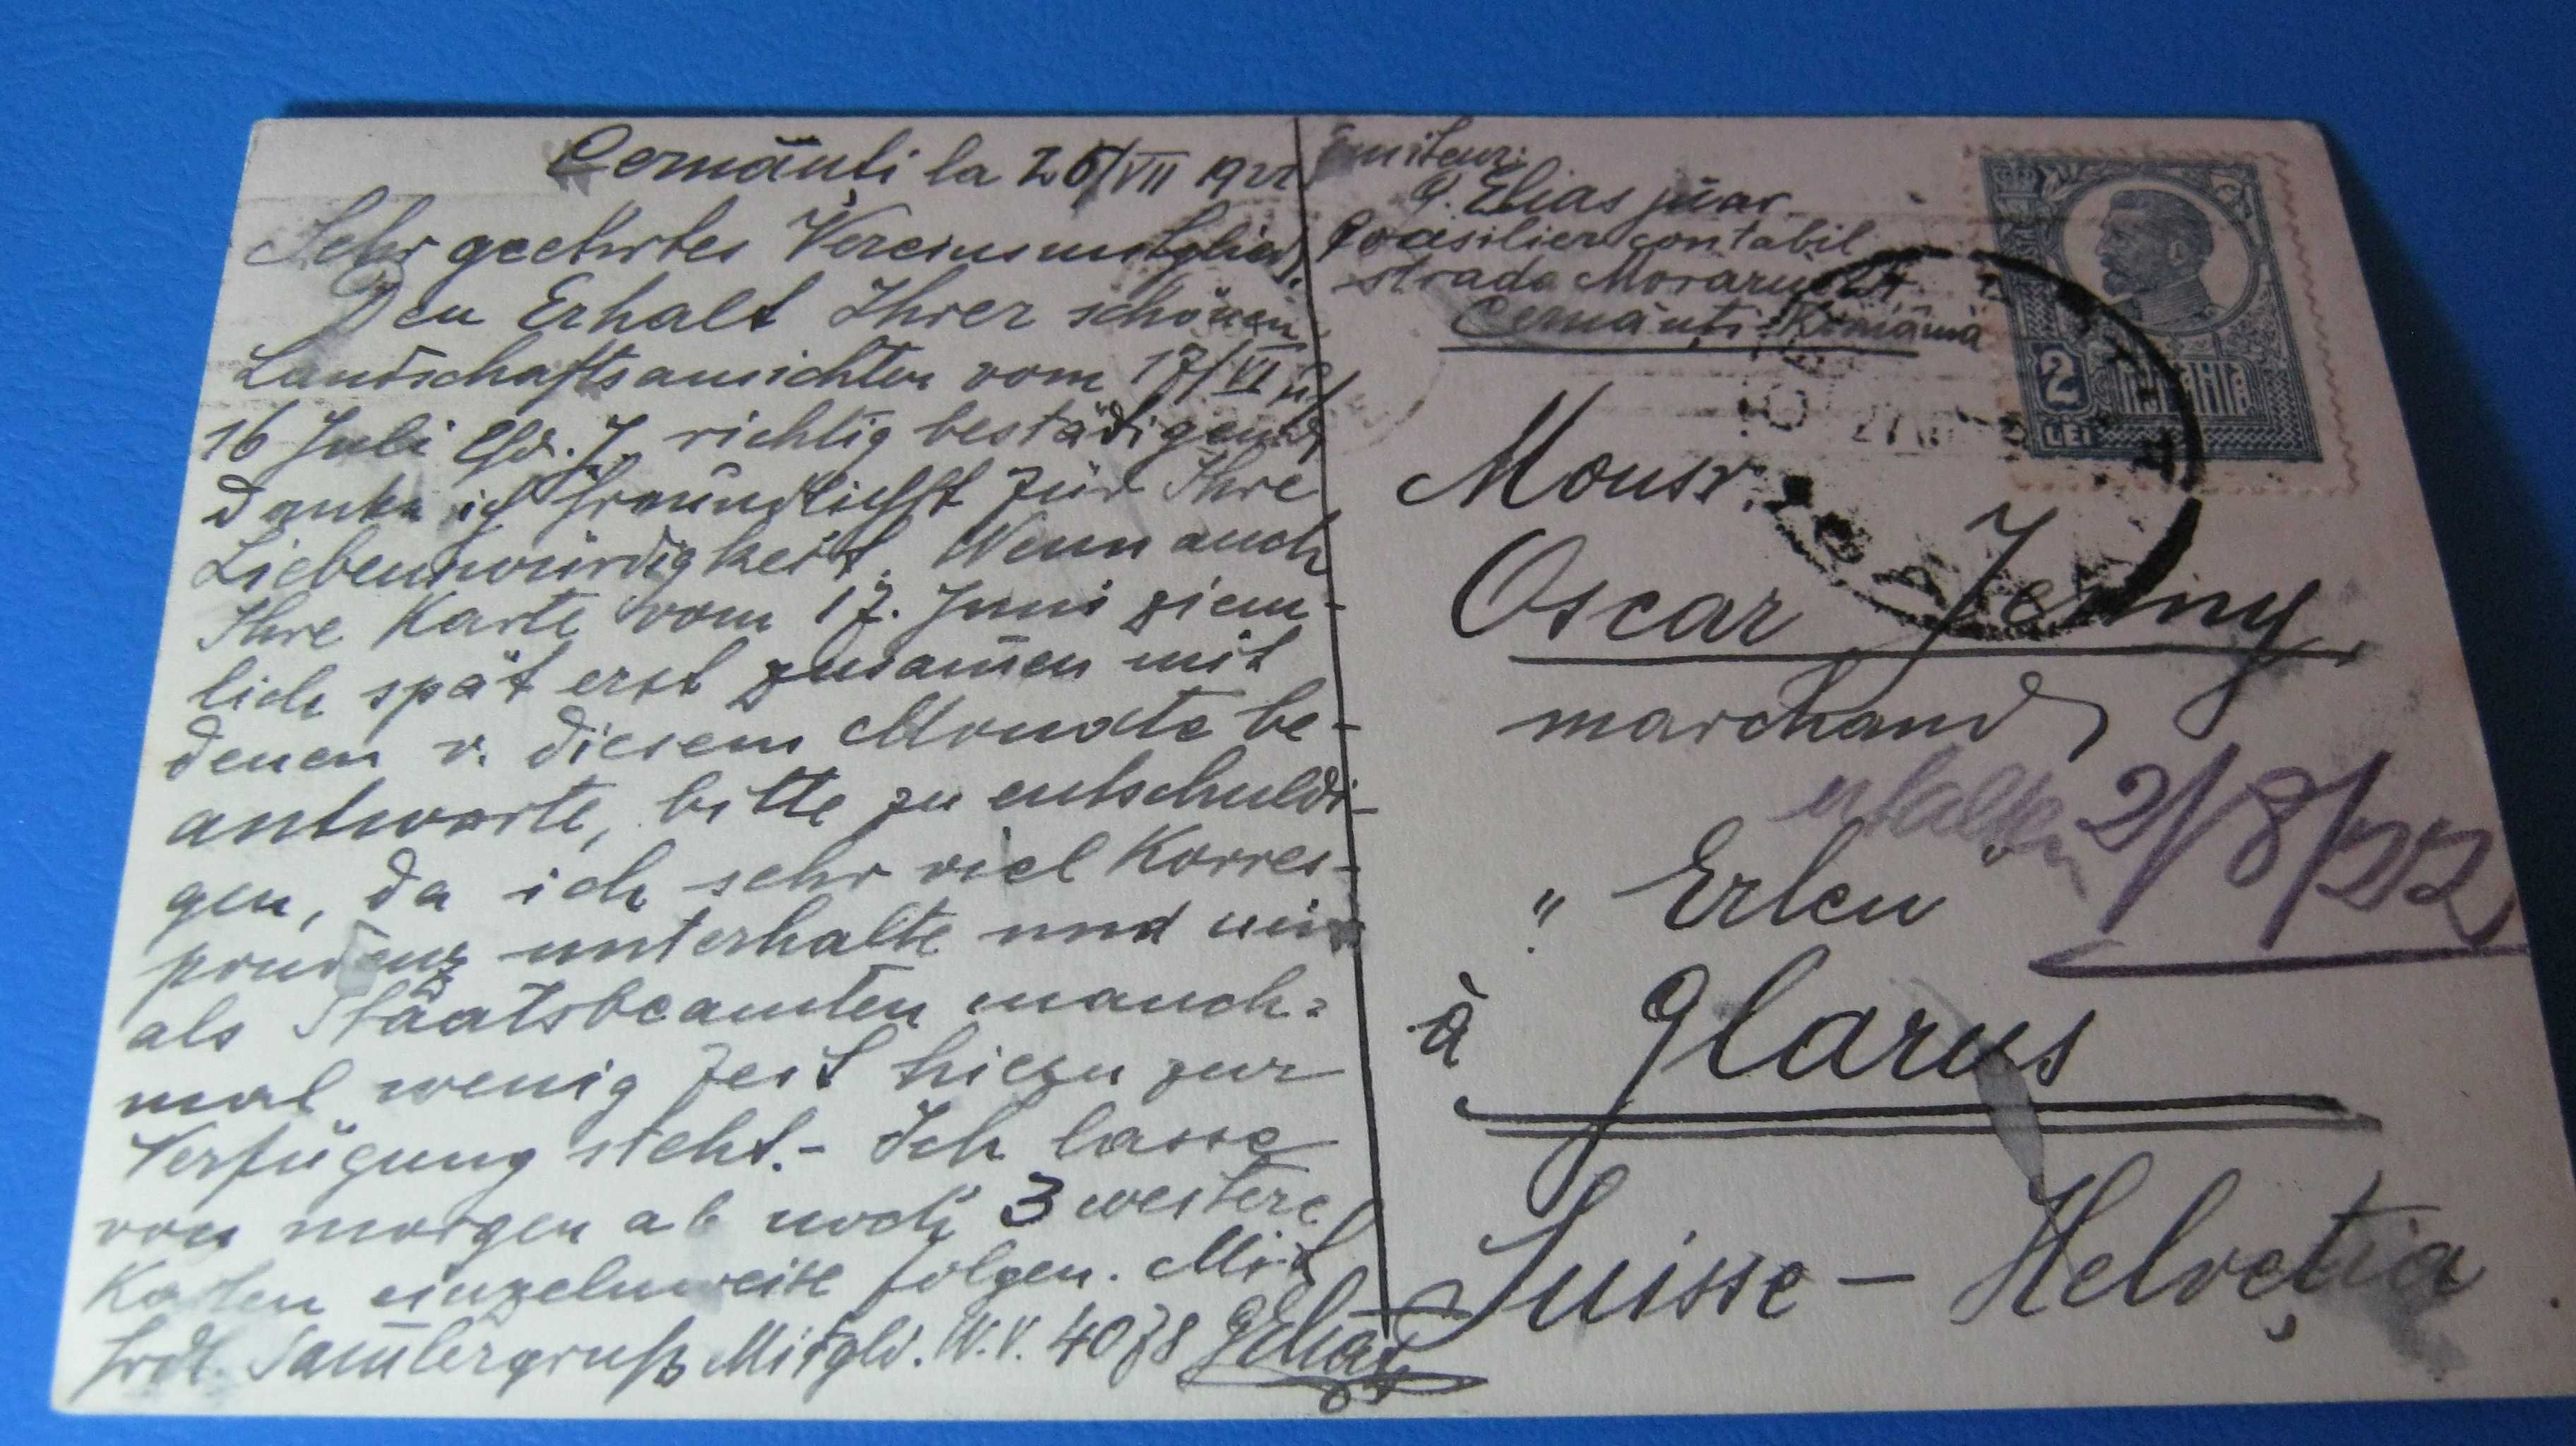 Cernăuti la 26/VII 1922
Sehr geehrtes Vereinsmitglied!
Den Erhalt Ihrer schönen
Landschaftsansichten vom 17/VI u/
16 Juli lfd. J. richtig bestätigend,
danke ich freundlichst für Ihre
Liebenswürdigkeit. Wenn auch
Ihre Karte vom 17. Juni ziem-
lich spät erst zusam̄en mit
denen v. diesem Monate be-
antworte, bitte zu entschuldi-
gen, da ich sehr viel Korres-
pondenz unterhalte und mir
als Staatsbeamten manch=
mal wenig Zeit hiezu zur
Verfügung steht.- Ich lasse
von morgen ab noch 3 weitere
Karten einzelnweise folgen. Mit
frdl. Sam̄lergruß Mitgld. W.V. 4078 GElias
Emiteur:
G. Elias
contabil
strada Morariu
Cernăuți România
2
LEI
ROMANIA
Monsr.
Oscar Jenny
marchand
erhalten 2/8/22
"Erlen"
à Glarus
Suisse - Helveția